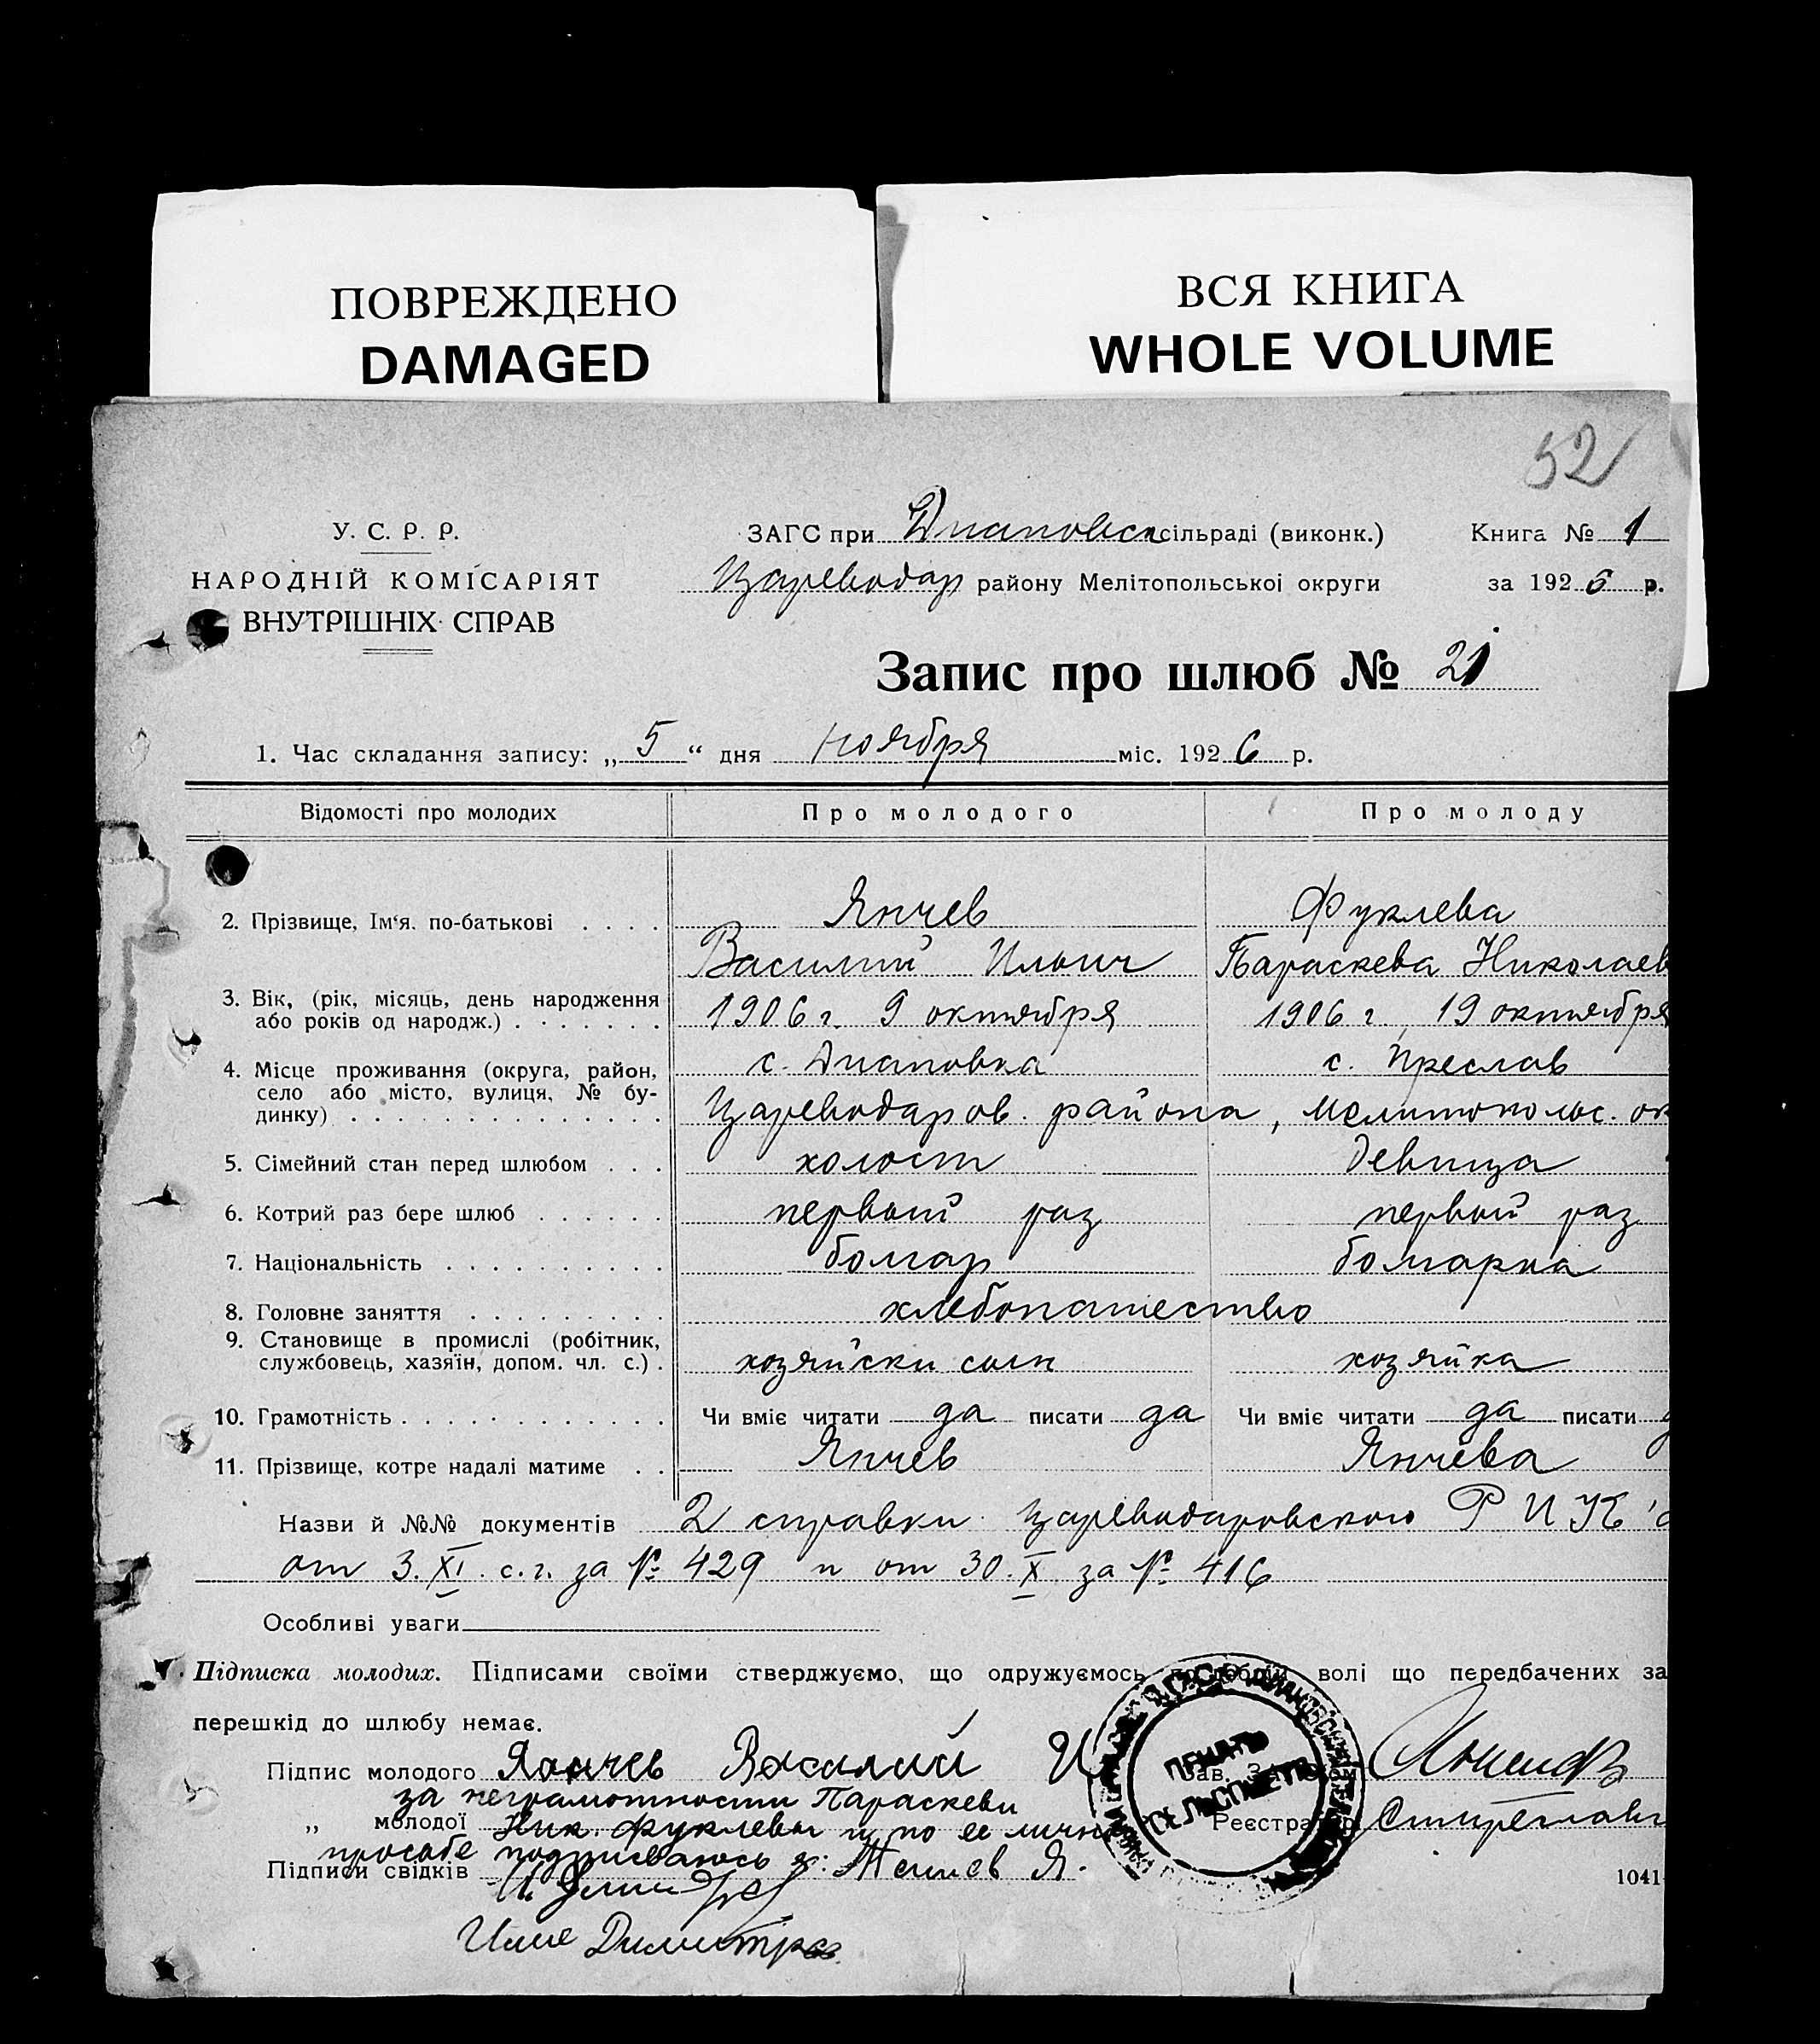 ПОВРЕЖДЕНО
DAMAGED
ВСЯ КНИГА
WHOLE VOLUME
52
У. С. Р. Р.
НАРОДНІЙ КОМІСАРІЯТ
ВНУТРІШНІХ СПРАВ
ЗАГС при Диановск сільраді (виконк.)
Цареводар району Мелітопольської округи
Книга № 1
за 1926 р.
Запис про шлюб № 21
1. Час складання запису: „5“ дня ноября міс. 1926 р.
Відомості про молодих Про молодого Про молоду
2. Прізвище, Ім'я. по-батькові . . . . Янчев Фуклева
Василий Ильич Параскева Николаев
3. Вік, (рік, місяць, день народження
або років од народж.) . . . . . . . 1906 г. 9 октября 1906 г. 19 октября
4. Місце проживання (округа, район,
село або місто, вулиця, № бу-
динку) . . . . . . . . . . . . . .
с. Диановка с. Преслав
Цареводаров. района, Мелитопольс. ок
5. Сімейний стан перед шлюбом . . . холост девица
6. Котрий раз бере шлюб . . . . . . первый раз первый раз
7. Національність . . . . . . . . . . болгар болгарка
8. Головне заняття . . . . . . . . . хлебопашество
9. Становище в промислі (робітник,
службовець, хазяїн, допом. чл. с.) . хозяйски сын хозяйка
10. Грамотність . . . . . . . . . . . . Чи вміє читати да писати да Чи вміє читати да писати
11. Прізвище, котре надалі матиме . . Янчев Янчева
Назви й №№ документів 2 справки Цареводаровского РИК'а
от 3.XI. с.г. за № 429 и от 30.X за № 416
Особливі уваги
Підписка молодих. Підписами своїми стверджуємо, що одружуємось по добрій волі що передбачених за
перешкід до шлюбу немає.
Підпис молодого Янчев Василий И
за неграмотности Параскеви
„ молодої Ник. Фуклевы и по ее личн
просьбе подписываюсь я:
Підписи свідків
Илие Димитров
ПЕЧАТЬ
СЕЛЬСОВЕТА
Зав. ЗАГСом
Реєстратор
1041